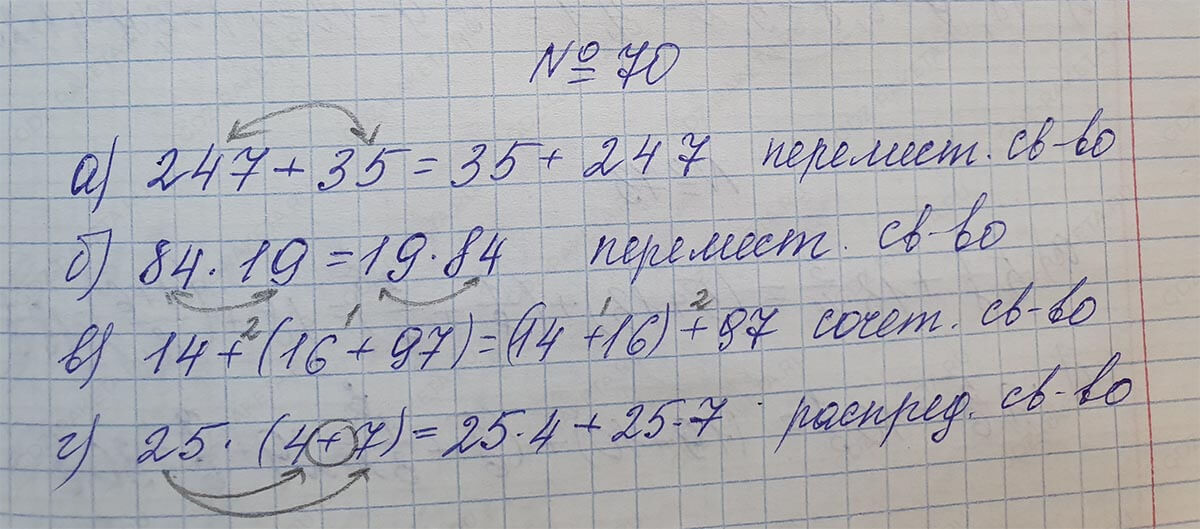 № 70
а) 247 + 35 = 35 + 247 перемест. св-во
б) 84 · 19 = 19 · 84 перемест. св-во
2 1 1 2
в) 14 + (16 + 97) = (14 + 16) + 97 сочет. св-во
г) 25 · (4 + 7) = 25 · 4 + 25 · 7 распред. св-во